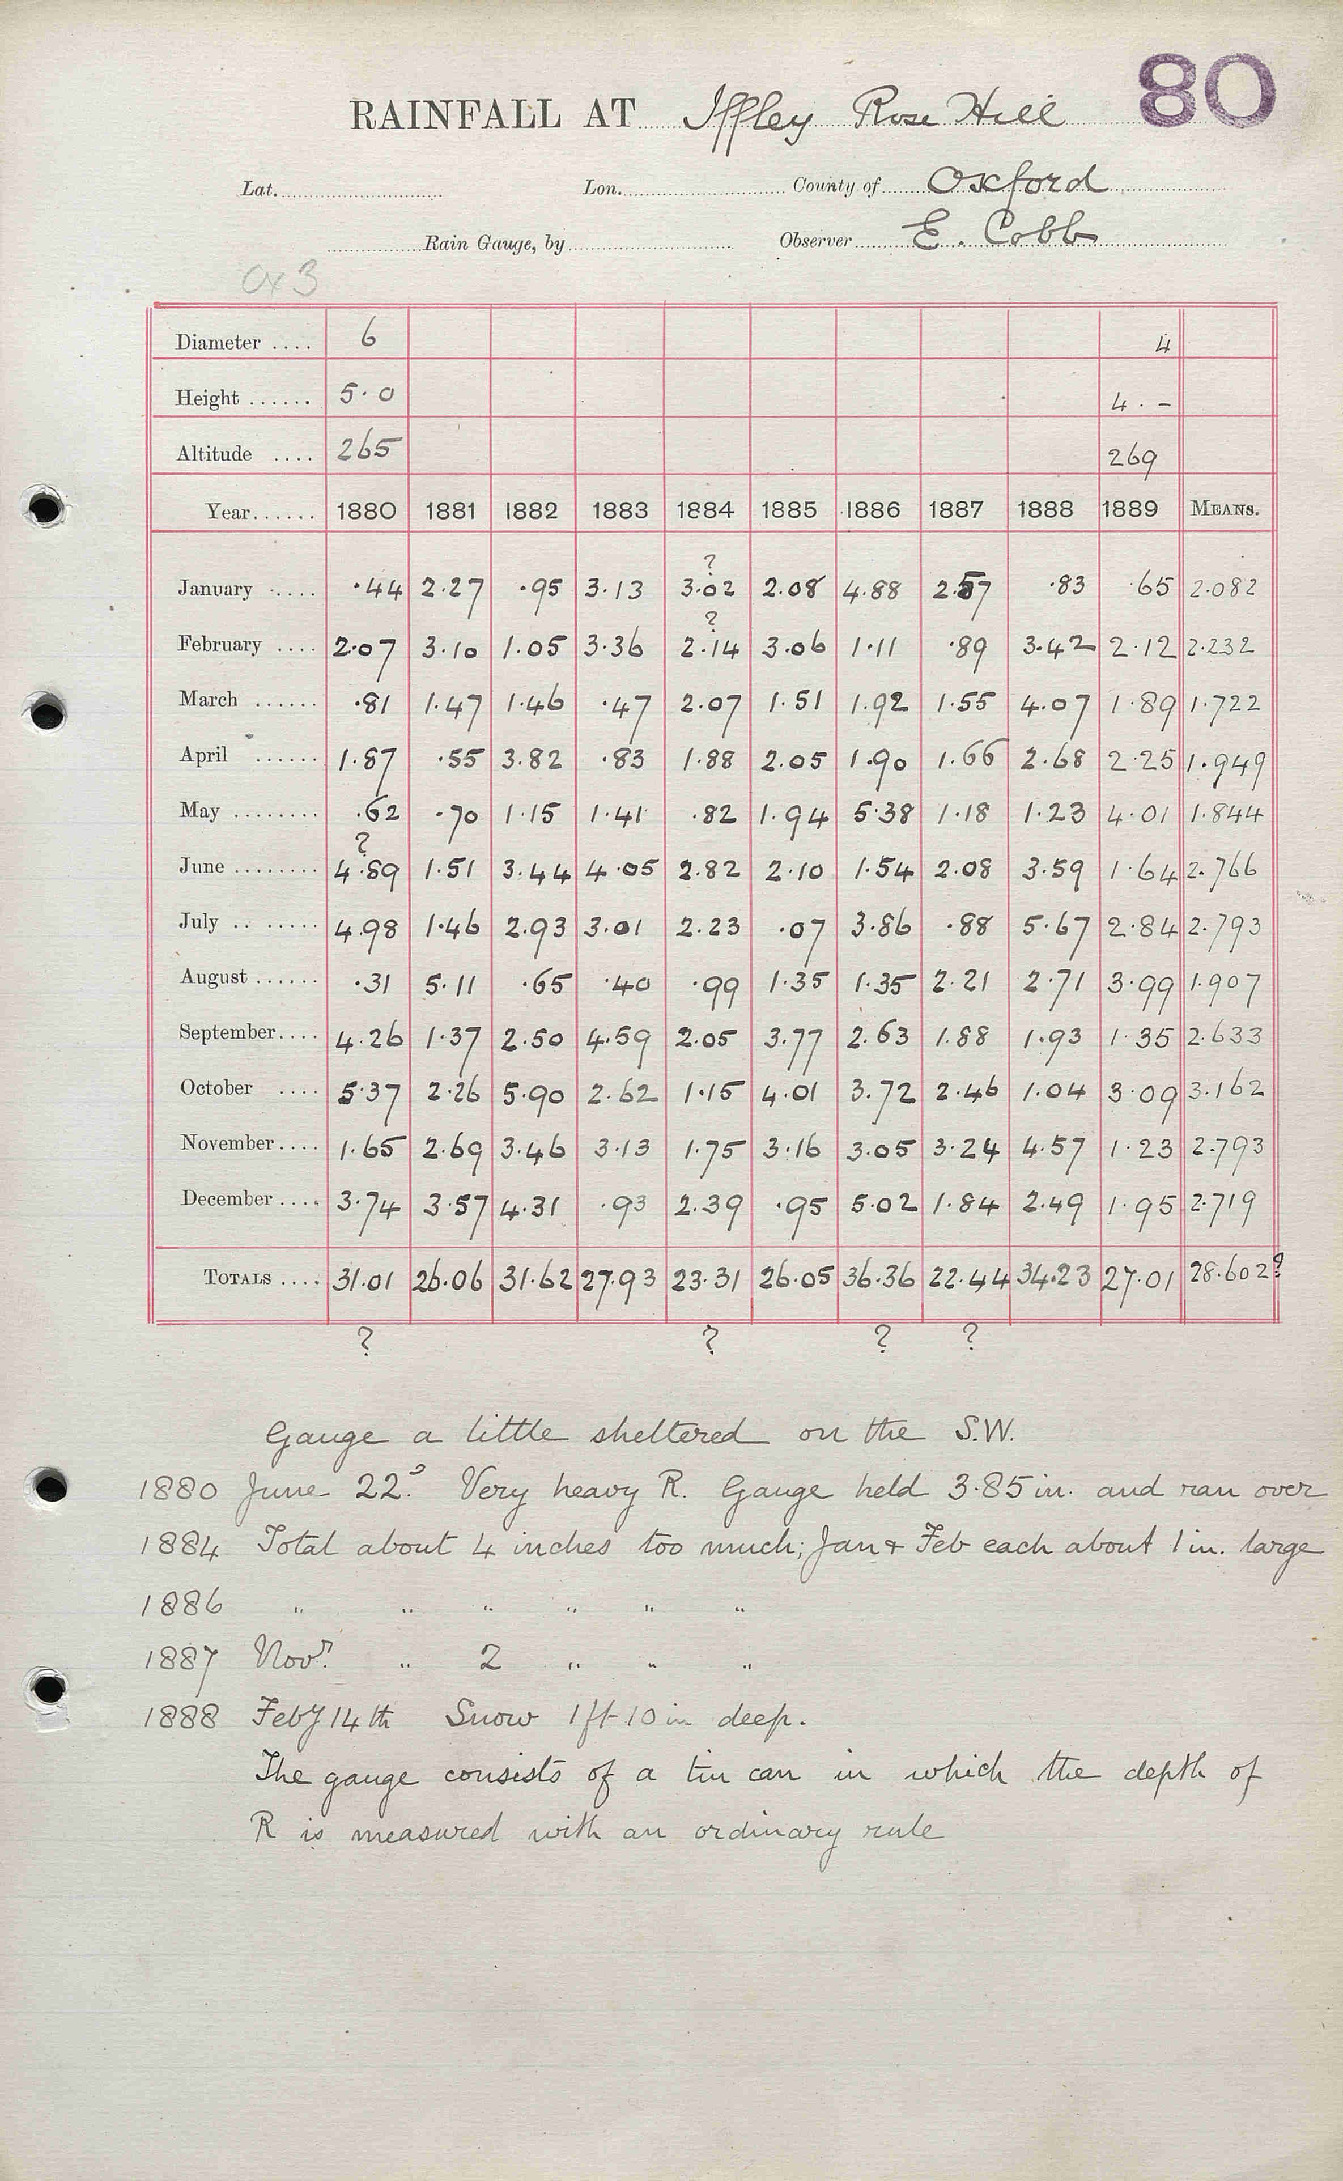 80
RAINFALL AT Iffley Rose Hill
Lat. Lon. County of Oxford
Rain Gauge, by Observer E. Cobb
Ox 3
Diameter .... 6 4
Height ...... 5.0 4.-
Altitude .... 265 269
Year...... 1880 1881 1882 1883 1884 1885 1886 1887 1888 1889 MEANS.
?
January ..... .44 2.27 .95 3.13 3.02 2.08 4.88 2.57 .83 .65 2.082
?
February .... 2.07 3.10 1.05 3.36 2.14 3.06 1.11 .89 3.42 2.12 2.232
March ...... .81 1.47 1.46 .47 2.07 1.51 1.92 1.55 4.07 1.89 1.722
April ...... 1.87 .55 3.82 .83 1.88 2.05 1.90 1.66 2.68 2.25 1.949
May ........ .62 .70 1.15 1.41 .82 1.94 5.38 1.18 1.23 4.01 1.844
?
June ........ 4.89 1.51 3.44 4.05 2.82 2.10 1.54 2.08 3.59 1.64 2.766
July .. ..... 4.98 1.46 2.93 3.01 2.23 .07 3.86 .88 5.67 2.84 2.793
August ...... .31 5.11 .65 .40 .99 1.35 1.35 2.21 2.71 3.99 1.907
September.... 4.26 1.37 2.50 4.59 2.05 3.77 2.63 1.88 1.93 1.35 2.633
October .... 5.37 2.26 5.90 2.62 1.15 4.01 3.72 2.46 1.04 3.09 3.162
November.... 1.65 2.69 3.46 3.13 1.75 3.16 3.05 3.24 4.57 1.23 2.793
December .... 3.74 3.57 4.31 .93 2.39 .95 5.02 1.84 2.49 1.95 2.719
TOTALS .... 31.01 26.06 31.62 27.93 23.31 26.05 36.36 22.44 34.23 27.01 28.602?
? ? ? ?
Gauge a little sheltered on the S.W.
1880 June 22d. Very heavy R. Gauge held 3.85 in. and ran over
1884 Total about 4 inches too much; Jan & Feb each about 1 in. large
1886 " " " " " "
1887 Novr. " 2 " " "
1888 Feby 14th Snow 1ft 10in deep.
The gauge consists of a tin can in which the depth of
R is measured with an ordinary rule